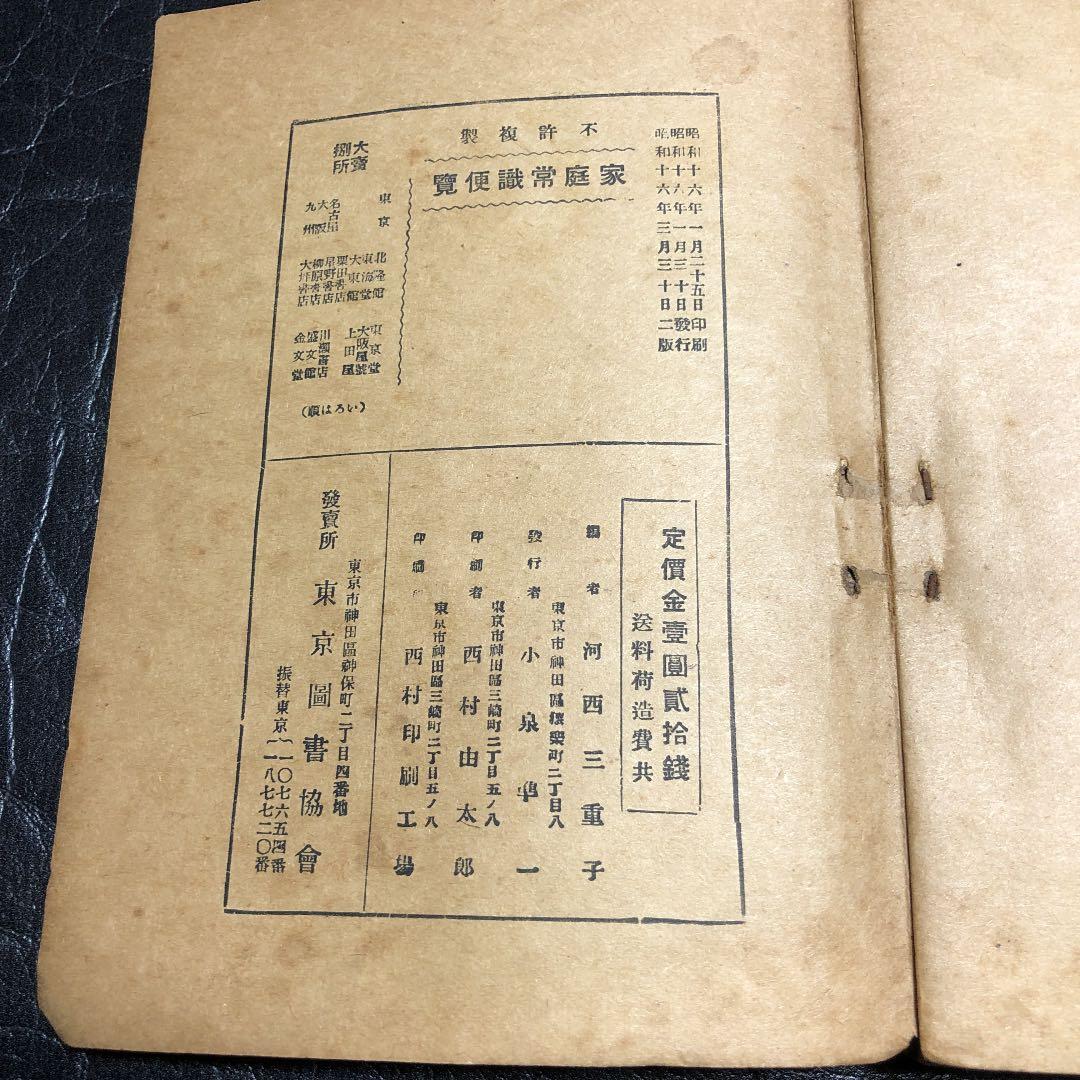 昭和十六年一月二十五日印刷
昭和十六年一月三十日發行
昭和十六年三月三十日二版
不許複製
家庭常識便覽
大賣捌所
東京
北隆館
東京堂
東海堂
大阪屋號
大東館
上田屋
名古屋
栗田書店
星野書店
川瀬書店
大阪
柳原書店
盛文館
九州
大坪書店
金文堂
(いろは順)
定價金壹圓貳拾錢
送料荷造費共
編者 河西三重子
東京市神田區猿樂町二丁目八
發行者 小泉 一
東京市神田區三崎町二丁目五ノ八
印刷者 西村由太郎
東京市神田區三崎町二丁目五ノ八
印刷 西村印刷工場
東京市神田區神保町二丁目四番地
發賣所 東京圖書協會
振替東京
一〇七六五四番
一八七七二〇番